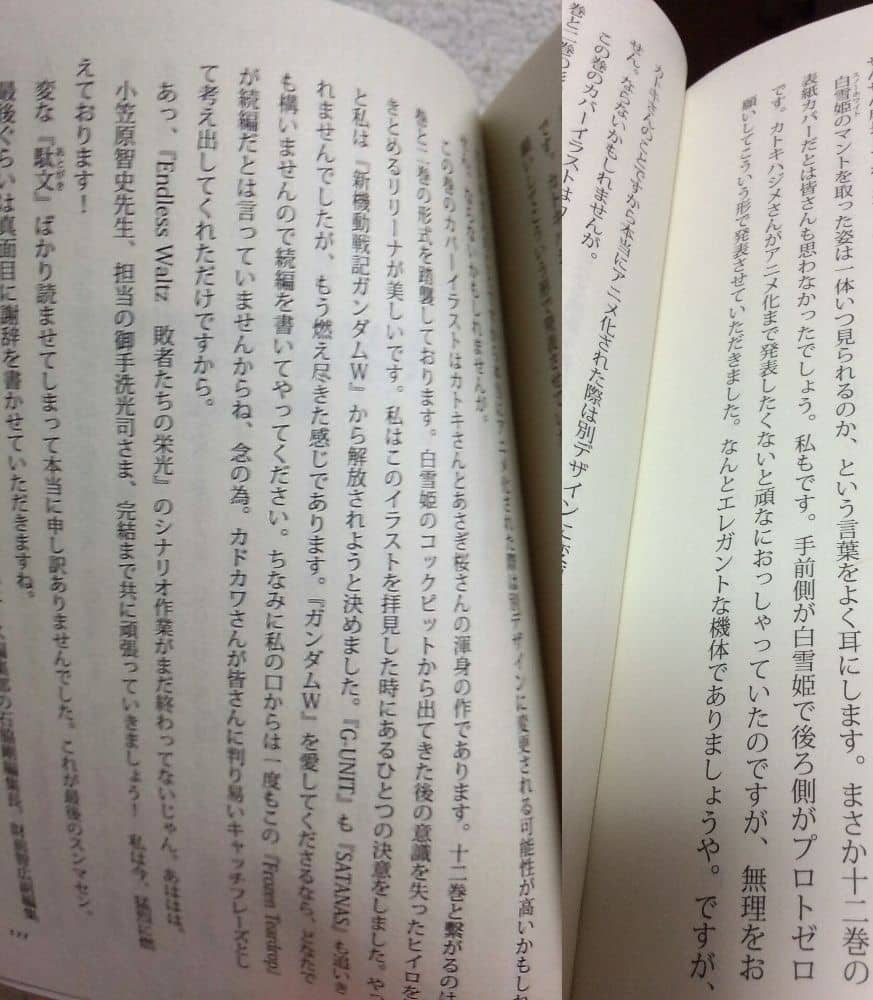 白雪姫のマントを取った姿は一体いつ見られるのか、という言葉をよく耳にします。まさか十二巻の
スノーホワイト
表紙カバーだとは皆さんも思わなかったでしょう。私もです。手前側が白雪姫で後ろ側がプロトゼロ
です。カトキハジメさんがアニメ化まで発表したくないと頑なにおっしゃっていたのですが、無理をお
願いしてこういう形で発表させていただきました。なんとエレガントな機体でありましょうや。ですが、
カトキさんのことですから本当にアニメ化された際は別デザインに変
せん。ならないかもしれませんが。
この巻のカバーイラストは
巻と二巻の
アニメ化された際は別デザインに変更される可能性が高いかもしれ
せん。ならないかもしれませんが。
この巻のカバーイラストはカトキさんとあさぎ桜さんの渾身の作であります。十二巻と繋がるのは
巻と二巻の形式を踏襲しております。白雪姫のコックピットから出てきた後の意識を失ったヒイロを
きとめるリリーナが美しいです。私はこのイラストを拝見した時にあるひとつの決意をしました。やっ
と私は『新機動戦記ガンダムW』から解放されようと決めました。『G-UNIT』も『SATANAS』も追いき
れませんでしたが、もう燃え尽きた感じであります。『ガンダムW』を愛してくださるなら、どなたで
も構いませんので続編を書いてやってください。ちなみに私の口からは一度もこの『Frozen Teardrop』
が続編だとは言っていませんからね、念の為。カドカワさんが皆さんに判り易いキャッチフレーズとし
て考え出してくれただけですから。
あっ、『Endless Waltz 敗者たちの栄光』のシナリオ作業がまだ終わってないじゃん。あははは。
小笠原智史先生、担当の御手洗光司さま、完結まで共に頑張っていきましょう! 私は今、猛烈に燃
えております!
変な『駄文』ばかり読ませてしまって本当に申し訳ありませんでした。これが最後のスンマセン。
あとがき
最後ぐらいは真面目に謝辞を書かせていただきますね。
編集部の石脇剛編集長、財前智広副編集